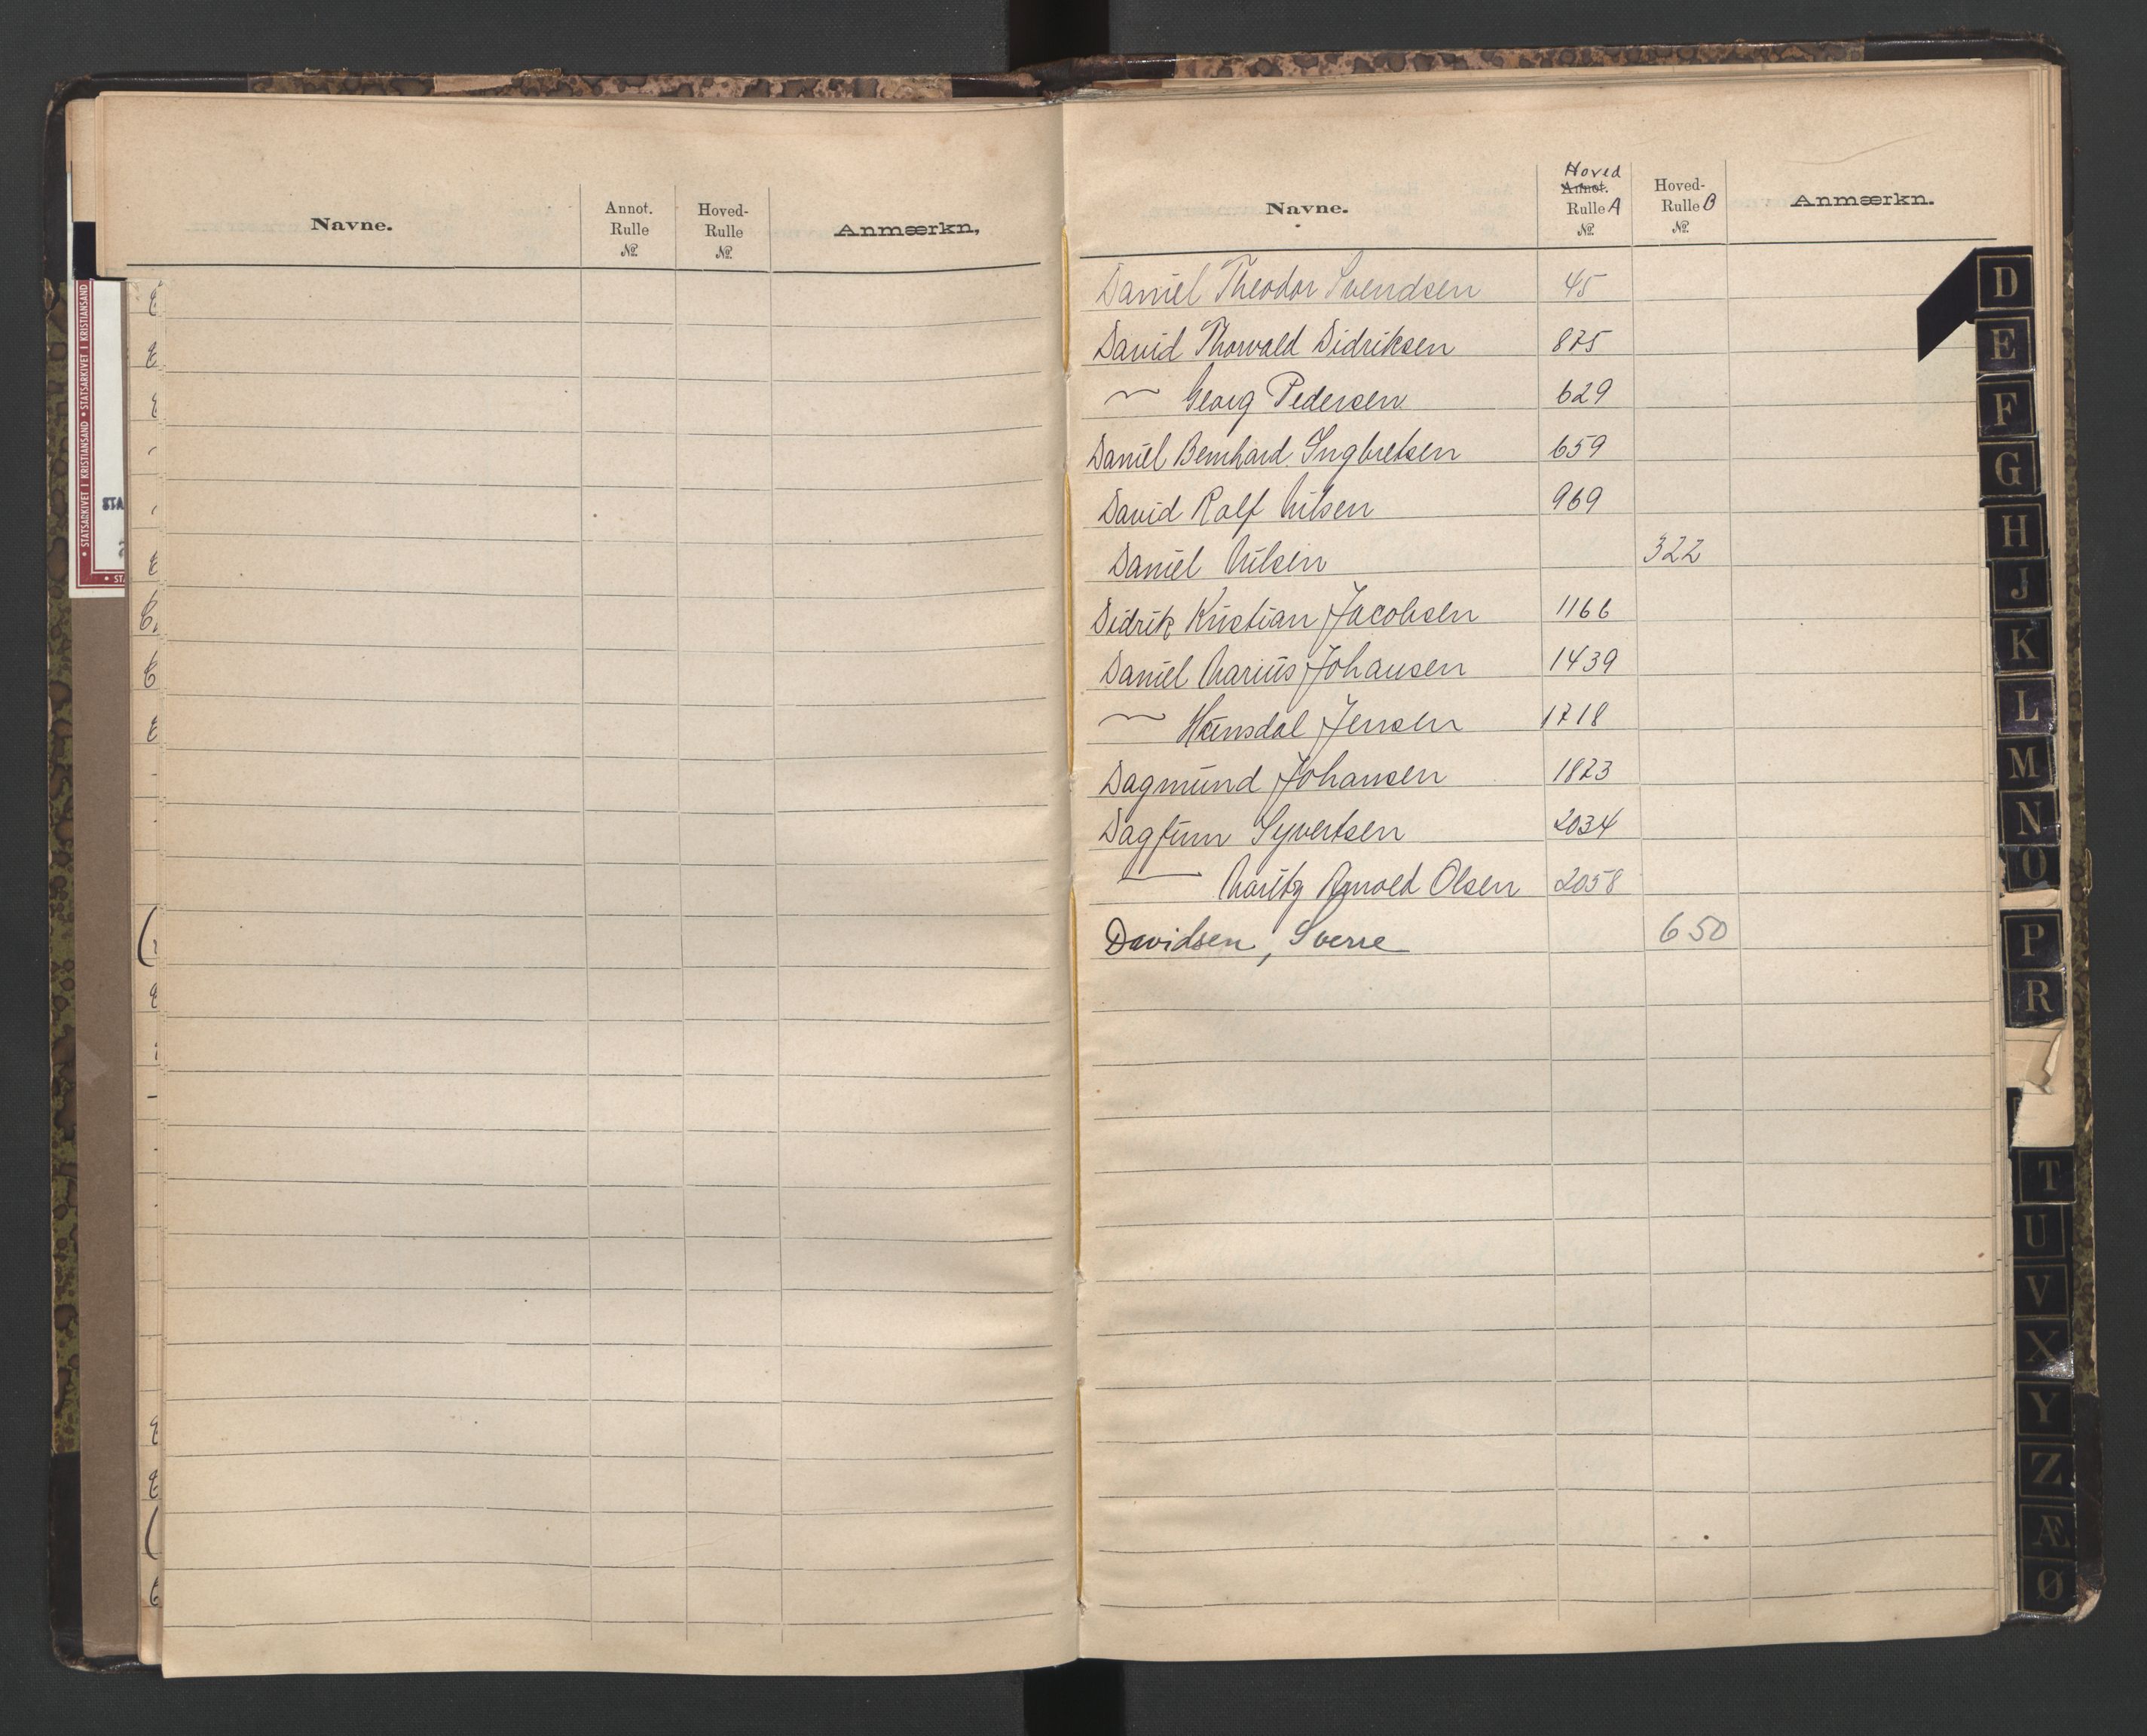 Navne.
Annot.
Rulle
№.
Hoved-
Rulle
№.
Anmærkn,
STATSARKIVET I KRISTIANSAND • STATSARKIVET I KRISTIANSAND
Navne.
Hoved
Annot.
Rulle A
№.
Hoved-
Rulle B
№.
Anmærkn.
Daniel Theodor Svendsen 45
David Thorvald Didriksen 875
〃 Georg Pedersen 629
Daniel Bernhard Ingbretsen 659
David Rolf Nilsen 969
Daniel Nilsen 322
Didrik Kristian Jacobsen 1166
Daniel Marius Johansen 1439
〃 Jensen 1718
Dagmund Johansen 1823
Dagfinn Syvertsen 2034
— Moritz Arnold Olsen 2058
Davidsen, Sverre 650
D
E
F
G
H
J
K
L
M
N
O
P
R
T
U
V
X
Y
Z
Æ
Ø